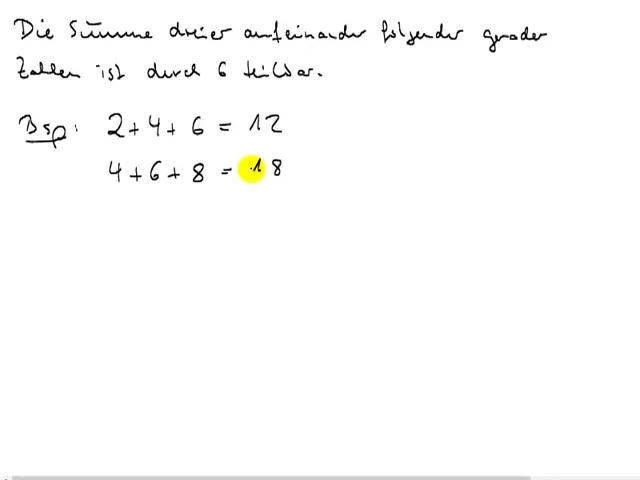 Die Summe dreier aufeinander folgender gerader
Zahlen ist durch 6 teilbar.
Bsp: 2 + 4 + 6 = 12
4 + 6 + 8 = 18